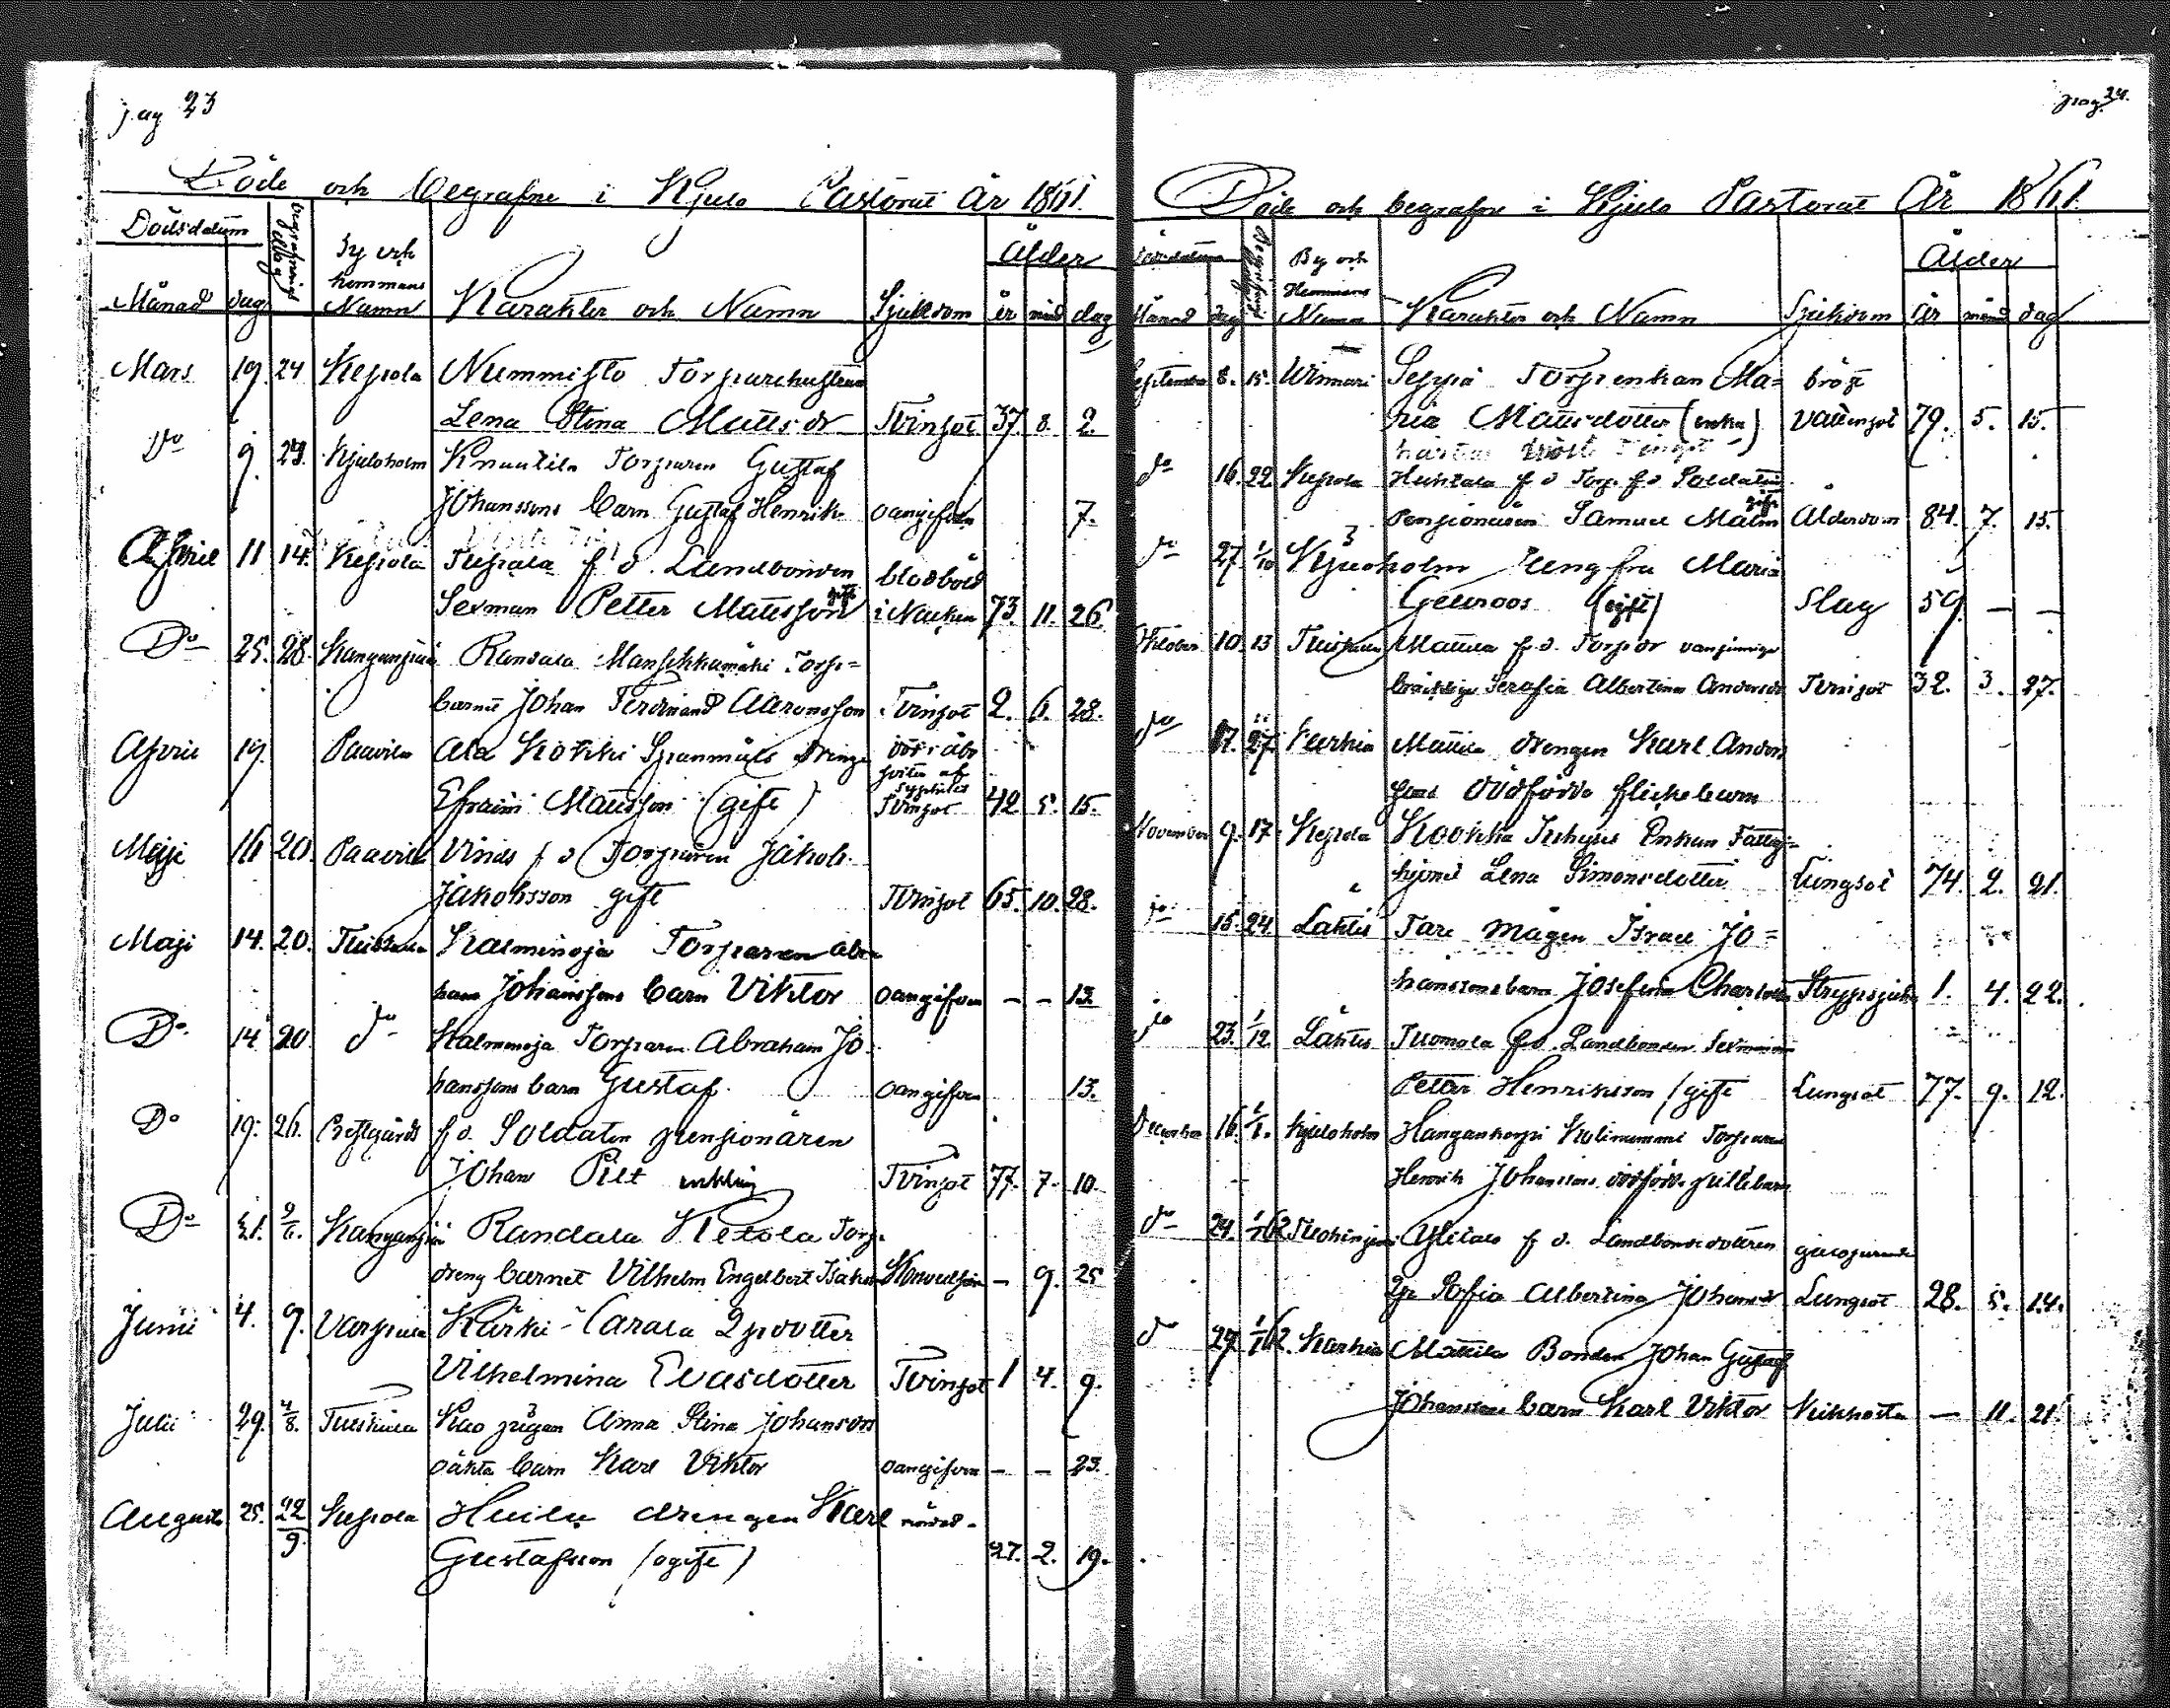 pag 23
Döde och begrafne i Kjulo Pastorat År 1861.
Dödsdatum
Begrafnings dag
By och hemmans Namn
Karakter och Namn
Sjukdom
Ålder
Månad dag
år mån dag
Mars 19. 24 Kepola Nummisto Torparehustrun
Lena Stina Mattsdr Tvinsot 37. 8. 2.
Do 9. 29. Kjuloholm Knuutila Torparen Gustaf
Johanssons barn Gustaf Henrik oangifven 7.
April 11 14. Kepola f d. Landbonden blodböld
Sexman Petter Mattsson gift i Nacken 73. 11. 26.
Do 25. 28. Randala Torp-
barnet Johan Ferdinand Aaronsson Tvinsot 2. 6. 28.
April 19. Paavila Ala Kokki Spanmåls dreng död i Åbo
af syphilis
Efraim Mattsson (gift) Tvinsot 42 5. 15.
Maji 16 20. Paavila f d Torparen Jakob
Jakobsson gift Tvinsot 65. 10. 28.
Maji 14. 20. Kalminoja Torparen Abra
ham Johanssons barn Viktor oangifven – – 13.
Do 14 20 do Kalminoja Torparen Abraham Jo
hanssons barn Gustaf. oangifven 13.
Do 19. 26. Prestgårds f d. Soldaten pensionären
Johan Pilt enkling Tvinsot 77. 7. 10.
Do 31. 9/6. Randala Ketola Torp.
dreng barnet Vilhelm Engelbert – 9. 25
Junii 4. 9. Karala 2 p dotter
Vilhelmina Evasdotter Tvinsot 1 4. 9.
Julii 29. 4/8. pigan Anna Stina Johansdrs
oäkta barn Karl Viktor oangifven – – 23.
Augusti 25. 22/9. Kepola Huilu drengen Karl
Gustafsson (ogift) 27. 2. 19.
pag. 24.
Döde och begrafne i Kjulo Pastorat År 1861.
Dödsdatum
Begrafnings dag
By och Hemmans Namn
Karakter och Namn
Sjukdom
Ålder
Månad dag
år månad dag
September 8. 15. Winnari Seppä Torpenkan Ma= bröst
ria Mattsdotter (enka) vattensot 79. 5. 15.
do 16. 22 Kepola f d Torp. f d Soldaten
Pensionären Samuel Malm gift Ålderdom 84. 7. 15.
do 27. 1/10 Kjuloholm Jungfru Maria
Slag 59. – –
Oktober 10. 13 Mattila f. d. Torp dr vansinniga
bräckliga Serafia Albertina Andersdr Tvinsot 32. 3. 27.
do 17. 27. Karhia Mattila drengen Karl Anders
sons dödfödda flickebarn
November 9. 17. Kepola Enkan Fattig-
hjonet Lena Simonsdotter Lungsot 74. 2. 21.
do 15. 24. Lähtis Tare Mågen Israel Jo=
hanssons barn Josefina Charlotta Strypsjuka 1. 4. 22.
do 23. 1/12. Lähtis Tuomola f. d. Landbonden Sexman
Petter Henriksson (gift Lungsot 77. 9. 12.
December 16. 1/1. Kjuloholm Torparen
Henrik Johanssons dödfödda gossebarn
do 24. 1/1 62 f d. Landbondedottren
2p Sofia Albertina Johansdr Lungsot 28. 5. 14.
do 27. 1/1 62. Karhia Mattila Bonden Johan Gustaf
Johanssons barn Karl Viktor Kikhosta – 11. 21.